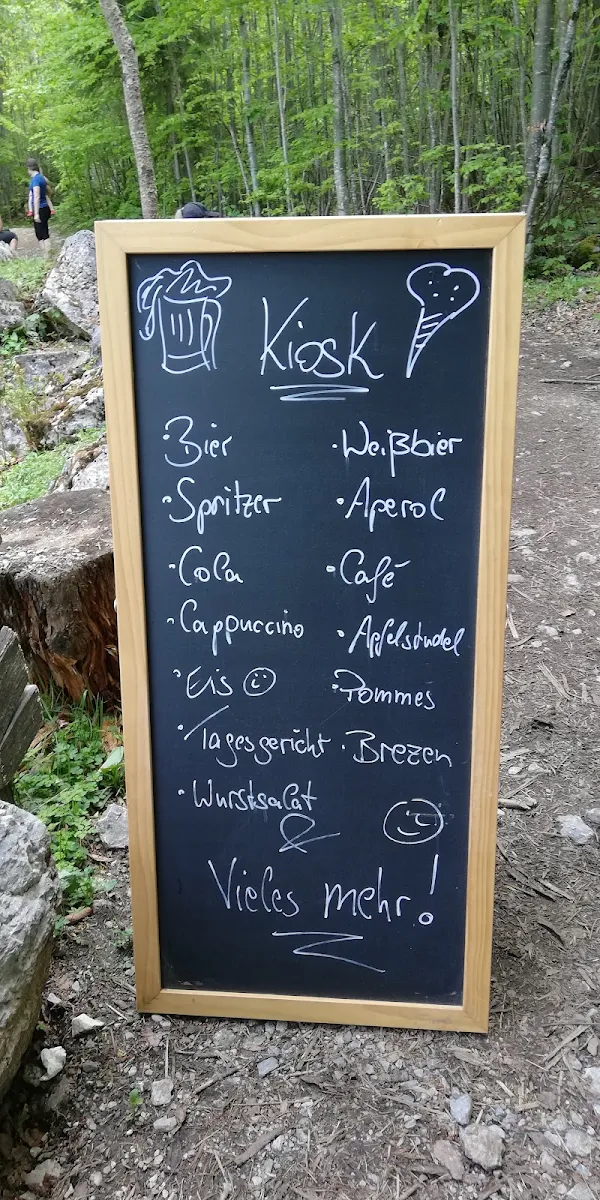 Kiosk
· Bier
· Weißbier
· Spritzer
· Aperol
· Cola
· Café
· Cappuccino
· Apfelstrudel
· Eis
· Pommes
· Tagesgericht
· Brezen
· Wurstsalat
&
Vieles mehr!